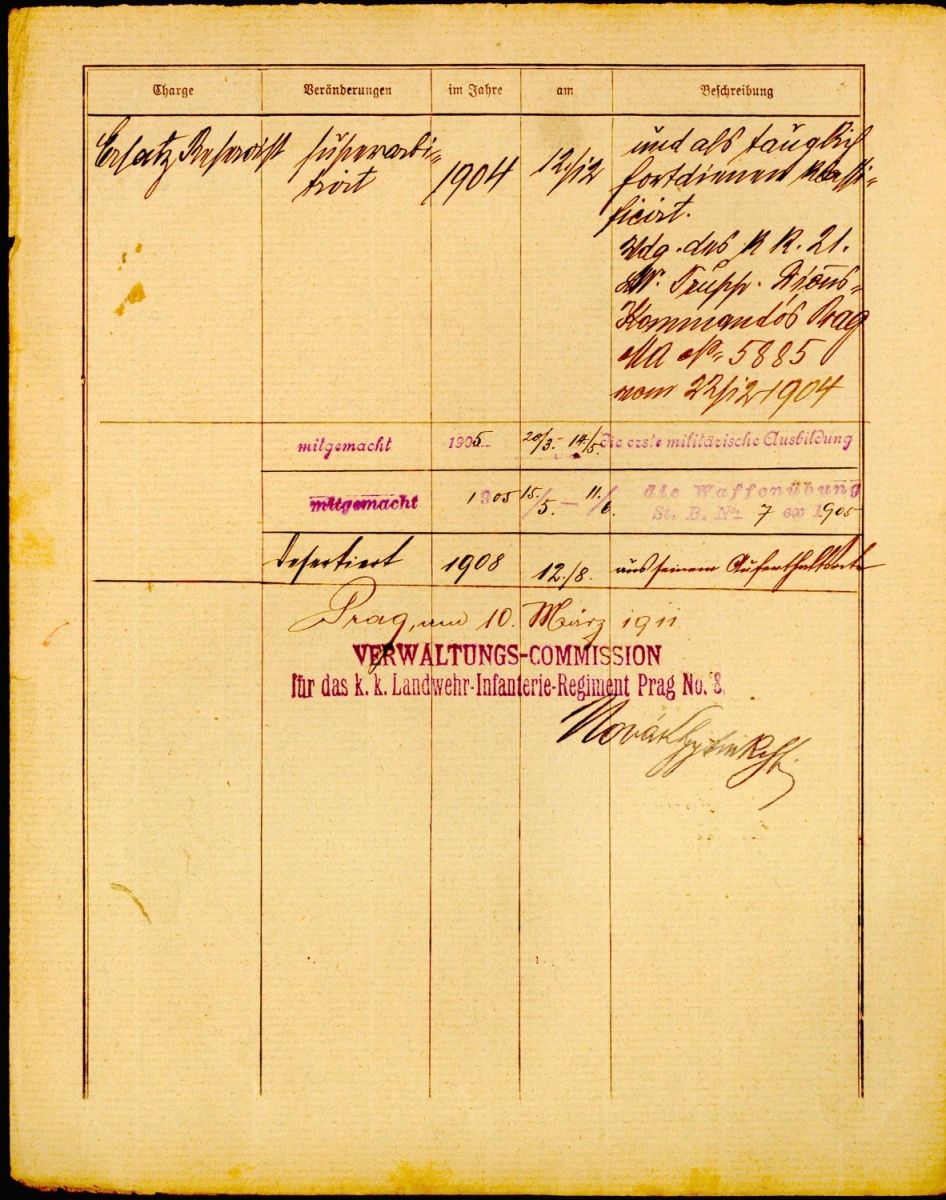 Charge Veränderungen im Jahre am Beschreibung
Ersatz Reservist superarbi- 1904 12/12 und als tauglich
trirt fortdienen klassi-
ficirt.
Vdg. des k k. 21.
Trupp. Divis-
Kommandos Prag
MA No 5885
vom 22/12 1904
mitgemacht 1905 20/3. 14./5. die erste militärische Ausbildung
mitgemacht 1905 15./5. — 11./6. die Waffenübung
St. B. No. 7 ex 1905
desertiert 1908 12./8. aus seinem Aufenthaltsorte
Prag, am 10. März 1911
VERWALTUNGS-COMMISSION
für das k. k. Landwehr-Infanterie-Regiment Prag No. 8.
Novák